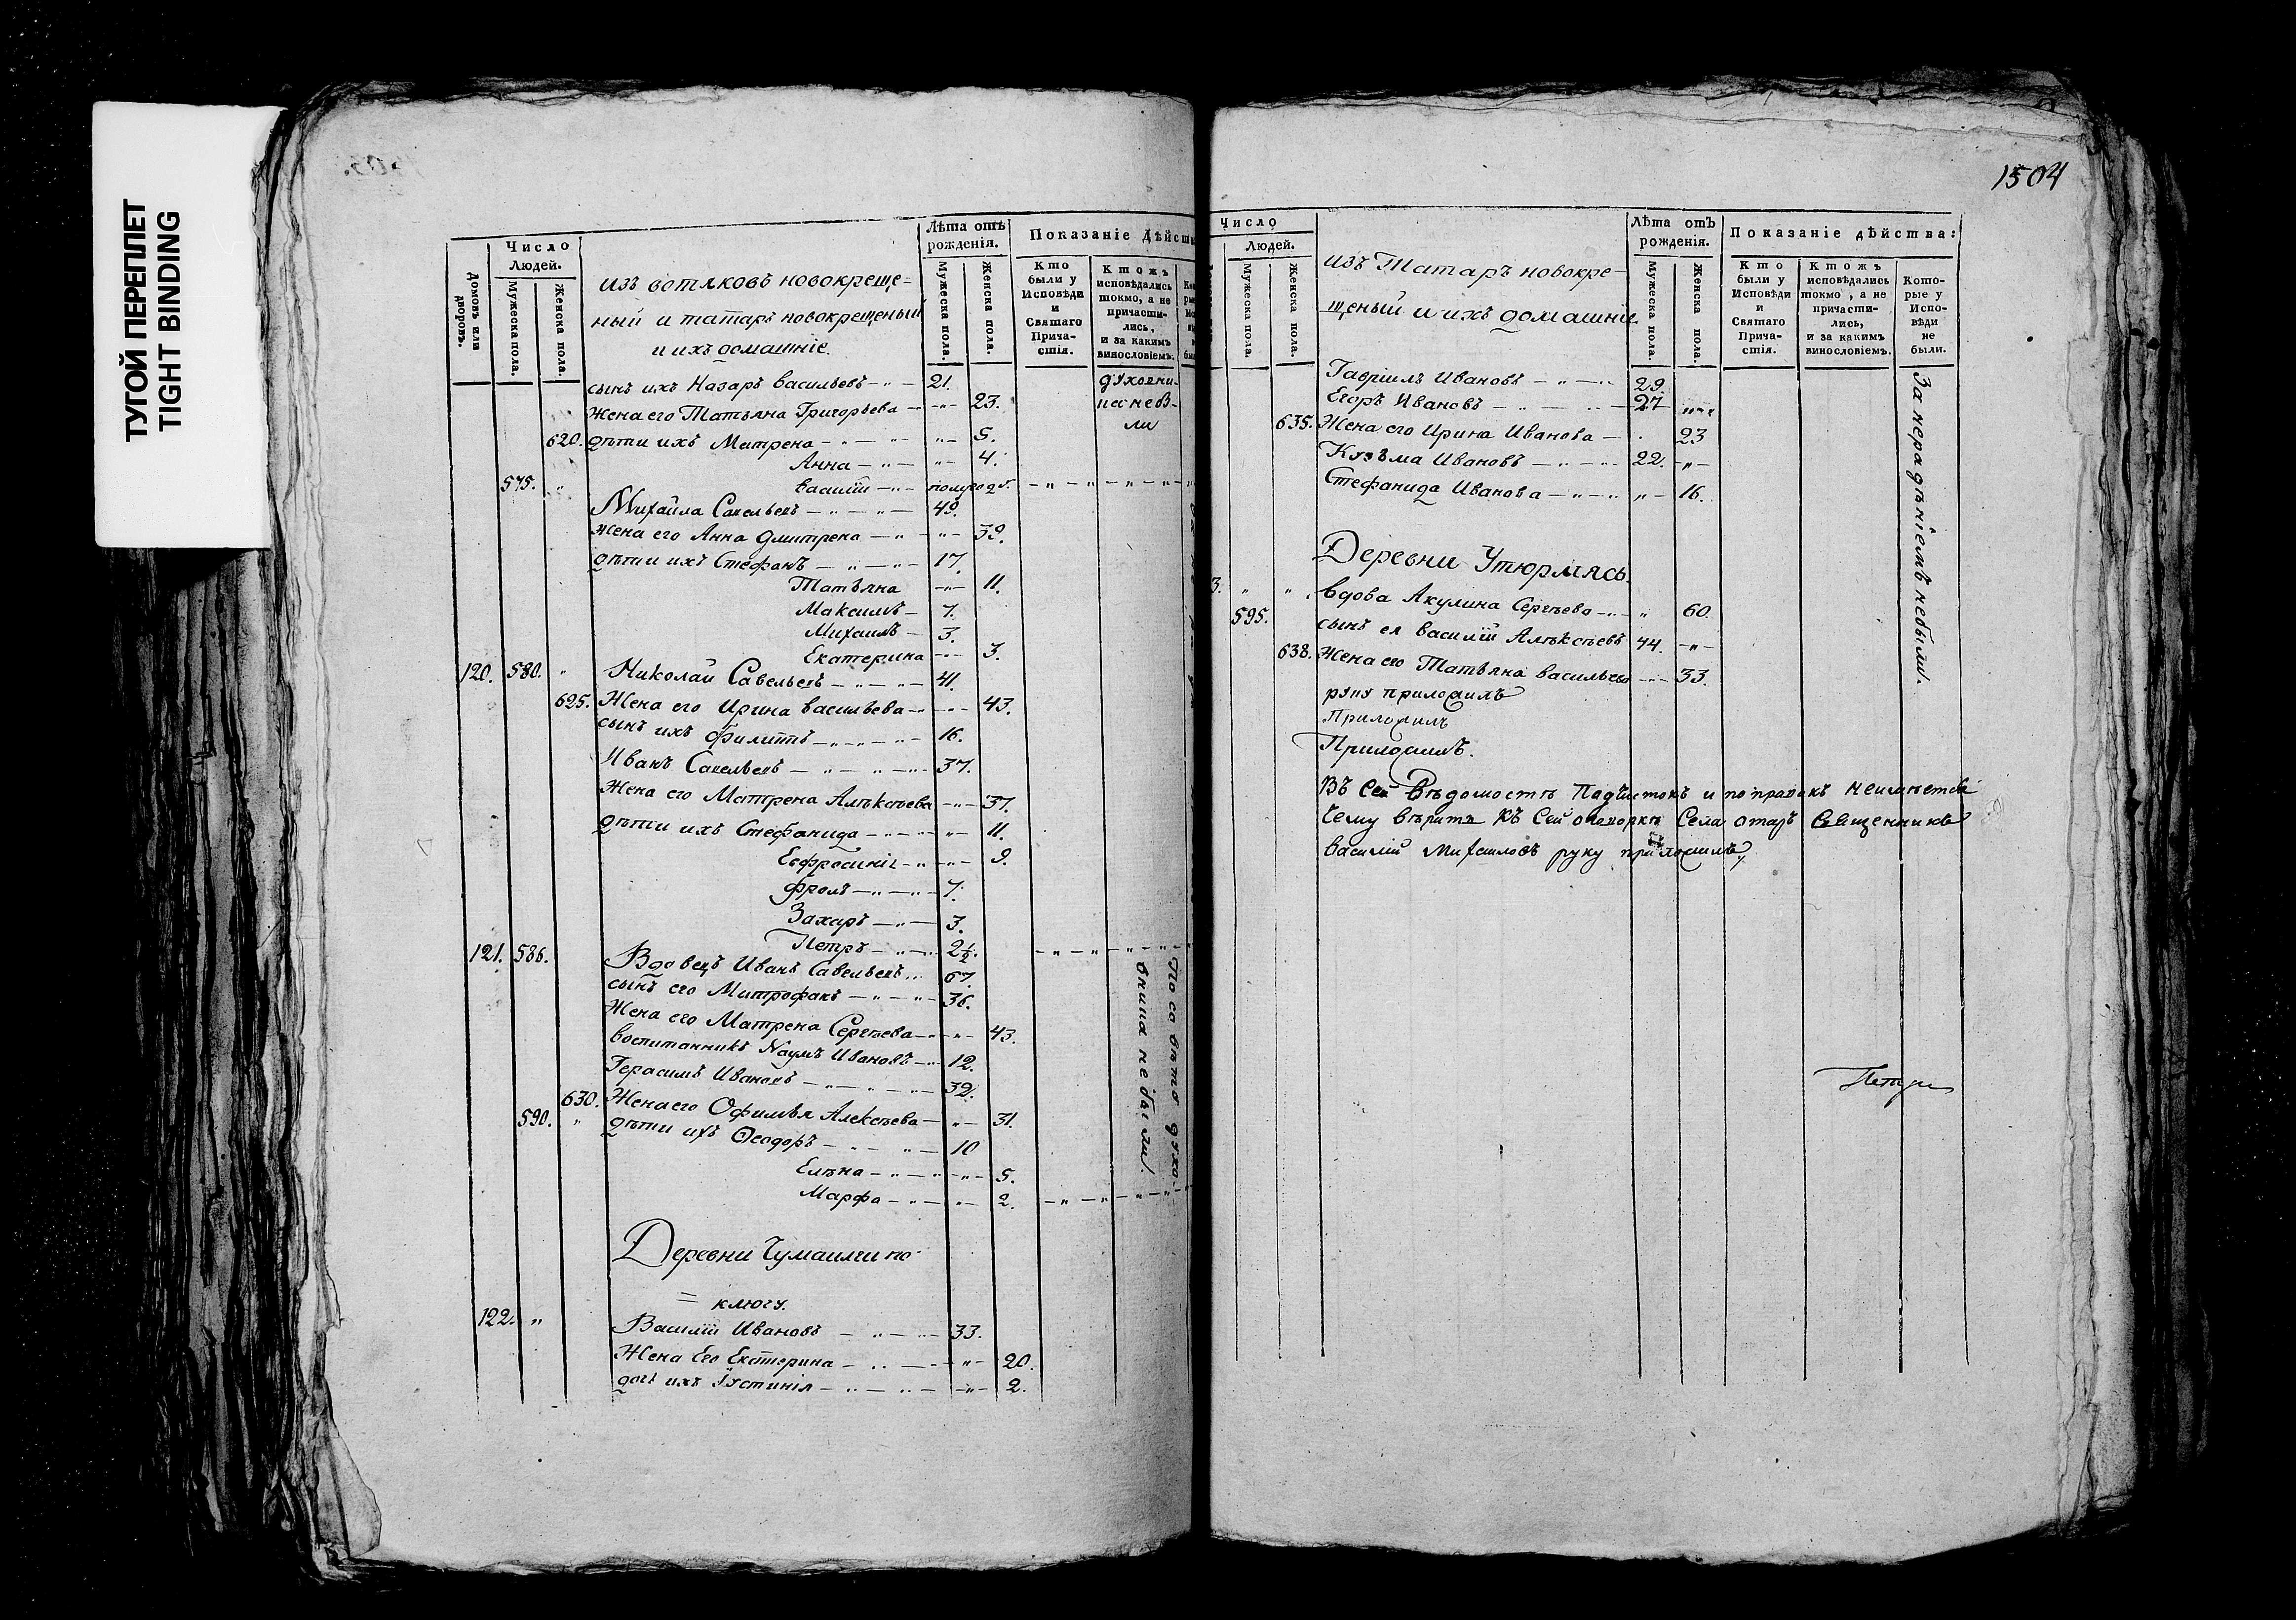 ТУГОЙ ПЕРЕПЛЕТ
TIGHT BINDING
Число
Людей.
Домовъ или дворовъ.
Мужеска пола.
Женска пола.
изъ вотяковъ новокреще-
ный и татаръ новокрещеный
и ихъ домашніе.
Лѣта отъ рожденія.
Мужеска пола.
Женска пола.
Показаніе Дѣйст
Кто были у Исповѣди и Святаго Прича-стія.
Ктожъ исповѣдались токмо, а не причасти-лись, и за какимъ винословіемъ.
сынъ ихъ Назаръ Васильевъ 21.
Жена его Татьяна Григорьева 23.
620. дѣти ихъ Матрена 5.
Анна 4.
575. " Василій полугодъ.
Михайла Савельевъ 49.
Жена его Анна Дмитрева 39.
дѣти ихъ Стефанъ 17.
Татьяна 11.
Максимъ 7.
Михаилъ 3.
Екатерина 3.
120. 580. " Николай Савельевъ 41.
625. Жена его Ирина Васильева 43.
сынъ ихъ Филиппъ 16.
Иванъ Савельевъ 37.
Жена его Матрена Алѣксѣева 37.
дѣти ихъ Стефанида 11.
Евфросинія 9.
Фролъ 7.
Захаръ 3.
Петръ 2½.
121. 586. Вдовецъ Иванъ Савельевъ 67.
сынъ его Митрофанъ 36.
Жена его Матрена Сергѣева 43.
воспитанникъ Наумъ Ивановъ 12.
Герасимъ Ивановъ 32.
630. Жена его Офимья Алексѣева 31.
590. " дѣти их Ѳеодоръ 10
Елѣна 5.
Марфа 2.
По совѣто духо-
вника не были.
Деревни Чумаилги по
= ключу.
122. " Василій Ивановъ 33.
Жена Его Екатерина 20.
дочь ихъ Устинія 2.
1504
Число
Людей.
Мужеска пола.
Женска пола.
изъ Татаръ новокре-
щеный и ихъ домашніе.
Лѣта отъ рожденія.
Мужеска пола.
Женска пола.
Показаніе дѣйства:
Кто были у Исповѣди и Святаго Прича-стія.
Ктожъ исповѣдались токмо, а не причасти-лись, и за какимъ винословіемъ.
Кото-рые у Испо-вѣди не были.
Гавріилъ Ивановъ 29.
Егоръ Ивановъ 27
635. Жена его Ирина Иванова 23
Кузьма Ивановъ 22.
Стефанида Иванова 16.
За нерадѣніемъ небыли.
Деревни Утюрмясь.
3. " " вдова Акулина Сергѣева 60.
595. сынъ ея Василій Алѣксѣевъ 44.
638. Жена его Татьяна Васильева 33.
руку приложилъ
Приложилъ
Приложилъ.
Въ сей Вѣдомостѣ Подчистокъ и поправокъ неимѣетсѣ
Чему вѣрить къ Сей Села отаръ Священникъ
Василій Михаиловъ руку приложилъ